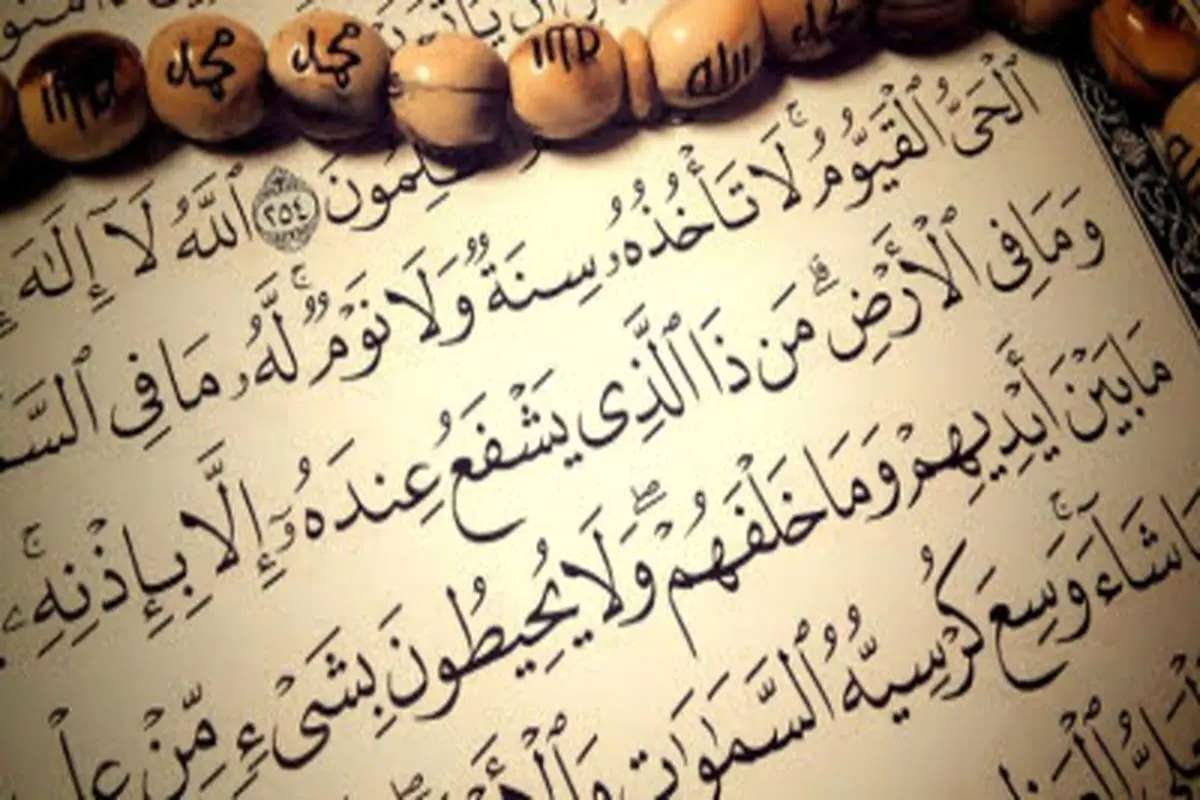 محمد محمد الله محمد
لِمُونَ ٢٥٤ ٱللَّهُ لَآ إِلَٰهَ
ٱلْحَىُّ ٱلْقَيُّومُ ۚ لَا تَأْخُذُهُۥ سِنَةٌ وَلَا نَوْمٌ ۚ لَّهُۥ مَا فِى ٱلسَّ
وَمَا فِى ٱلْأَرْضِ ۗ مَن ذَا ٱلَّذِى يَشْفَعُ عِندَهُۥٓ إِلَّا بِإِذْنِهِۦ ۚ
مَا بَيْنَ أَيْدِيهِمْ وَمَا خَلْفَهُمْ ۖ وَلَا يُحِيطُونَ بِشَىْءٍ مِّنْ عِلْ
اشَآءَ ۚ وَسِعَ كُرْسِيُّهُ ٱلسَّمَٰوَٰتِ وَٱلْأَرْ